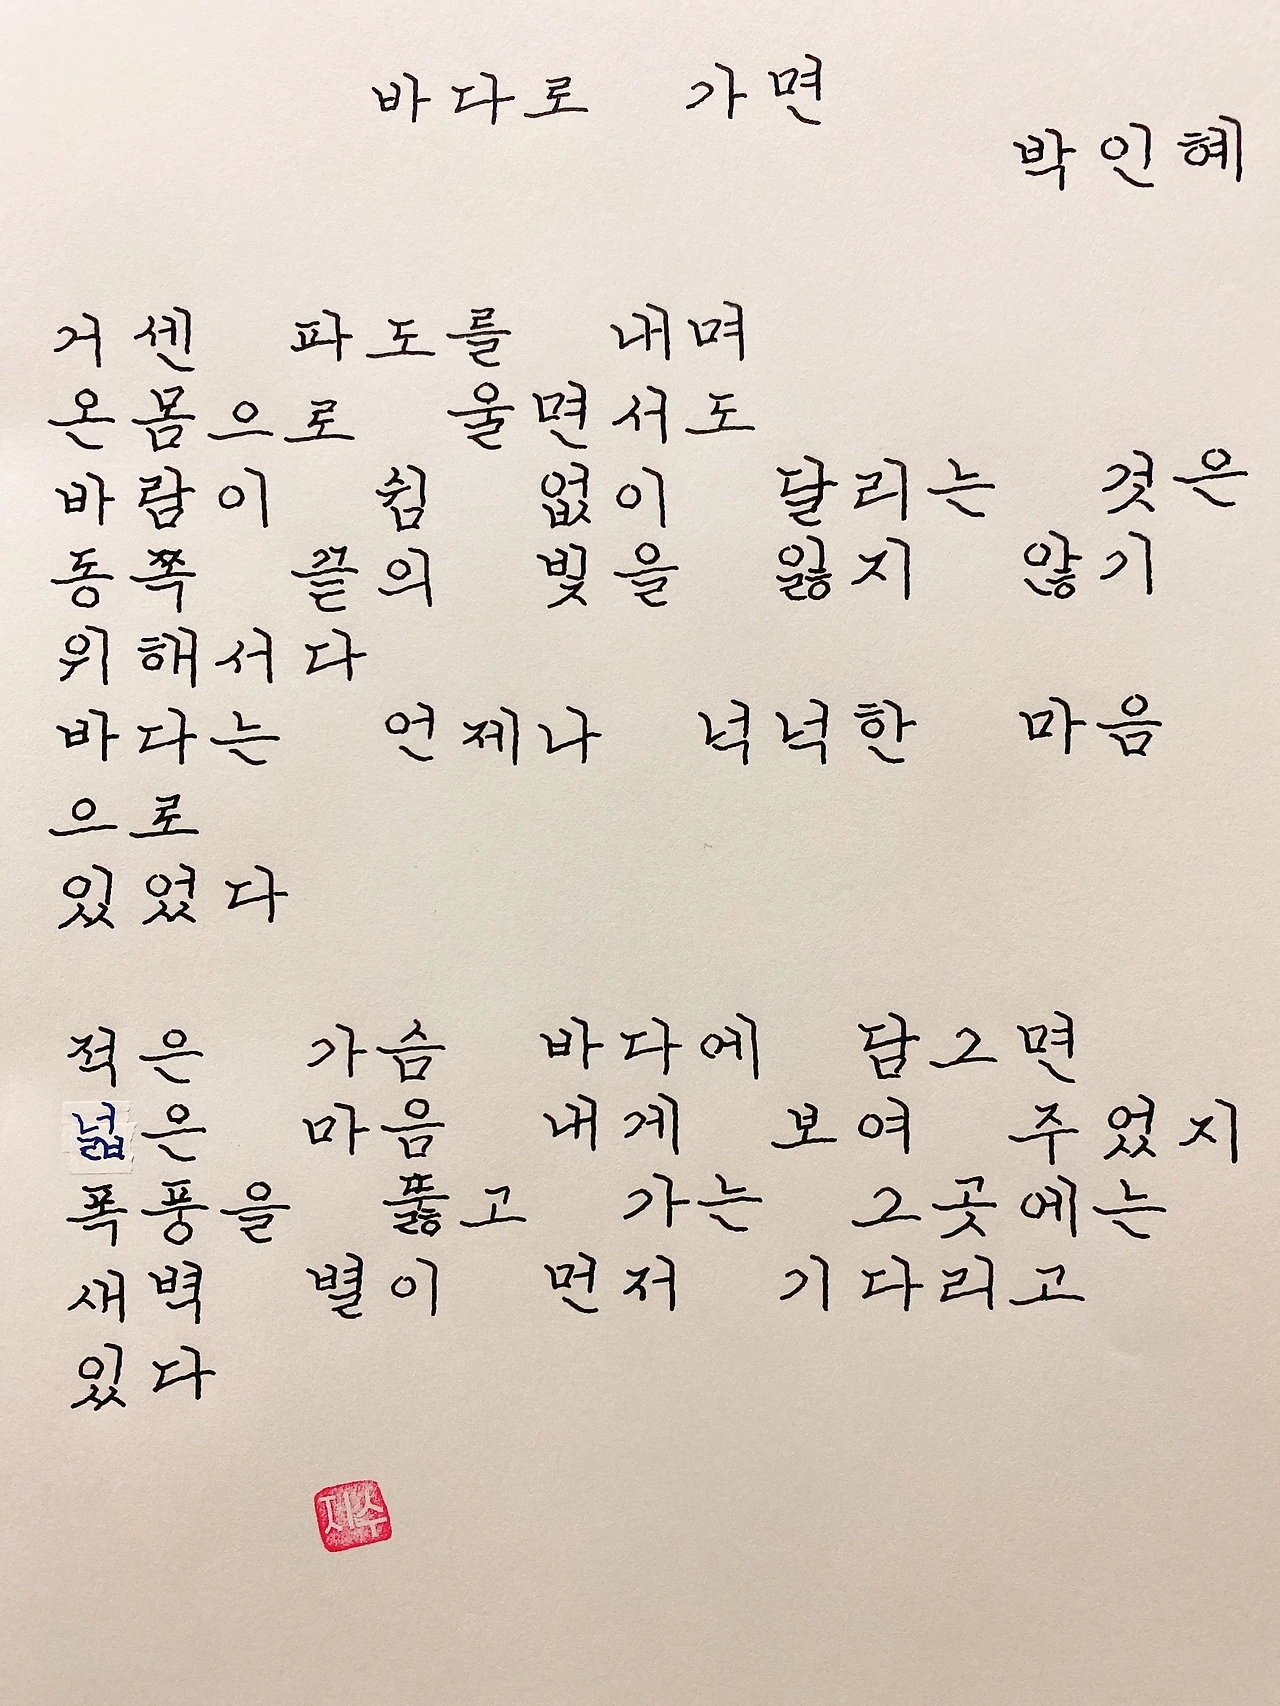 바다로 가면
박인혜
거센 파도를 내며
온몸으로 울면서도
바람이 쉼 없이 달리는 것은
동쪽 끝의 빛을 잃지 않기
위해서다
바다는 언제나 넉넉한 마음
으로
있었다
적은 가슴 바다에 담그면
넓은 마음 내게 보여 주었지
폭풍을 뚫고 가는 그곳에는
새벽 별이 먼저 기다리고
있다